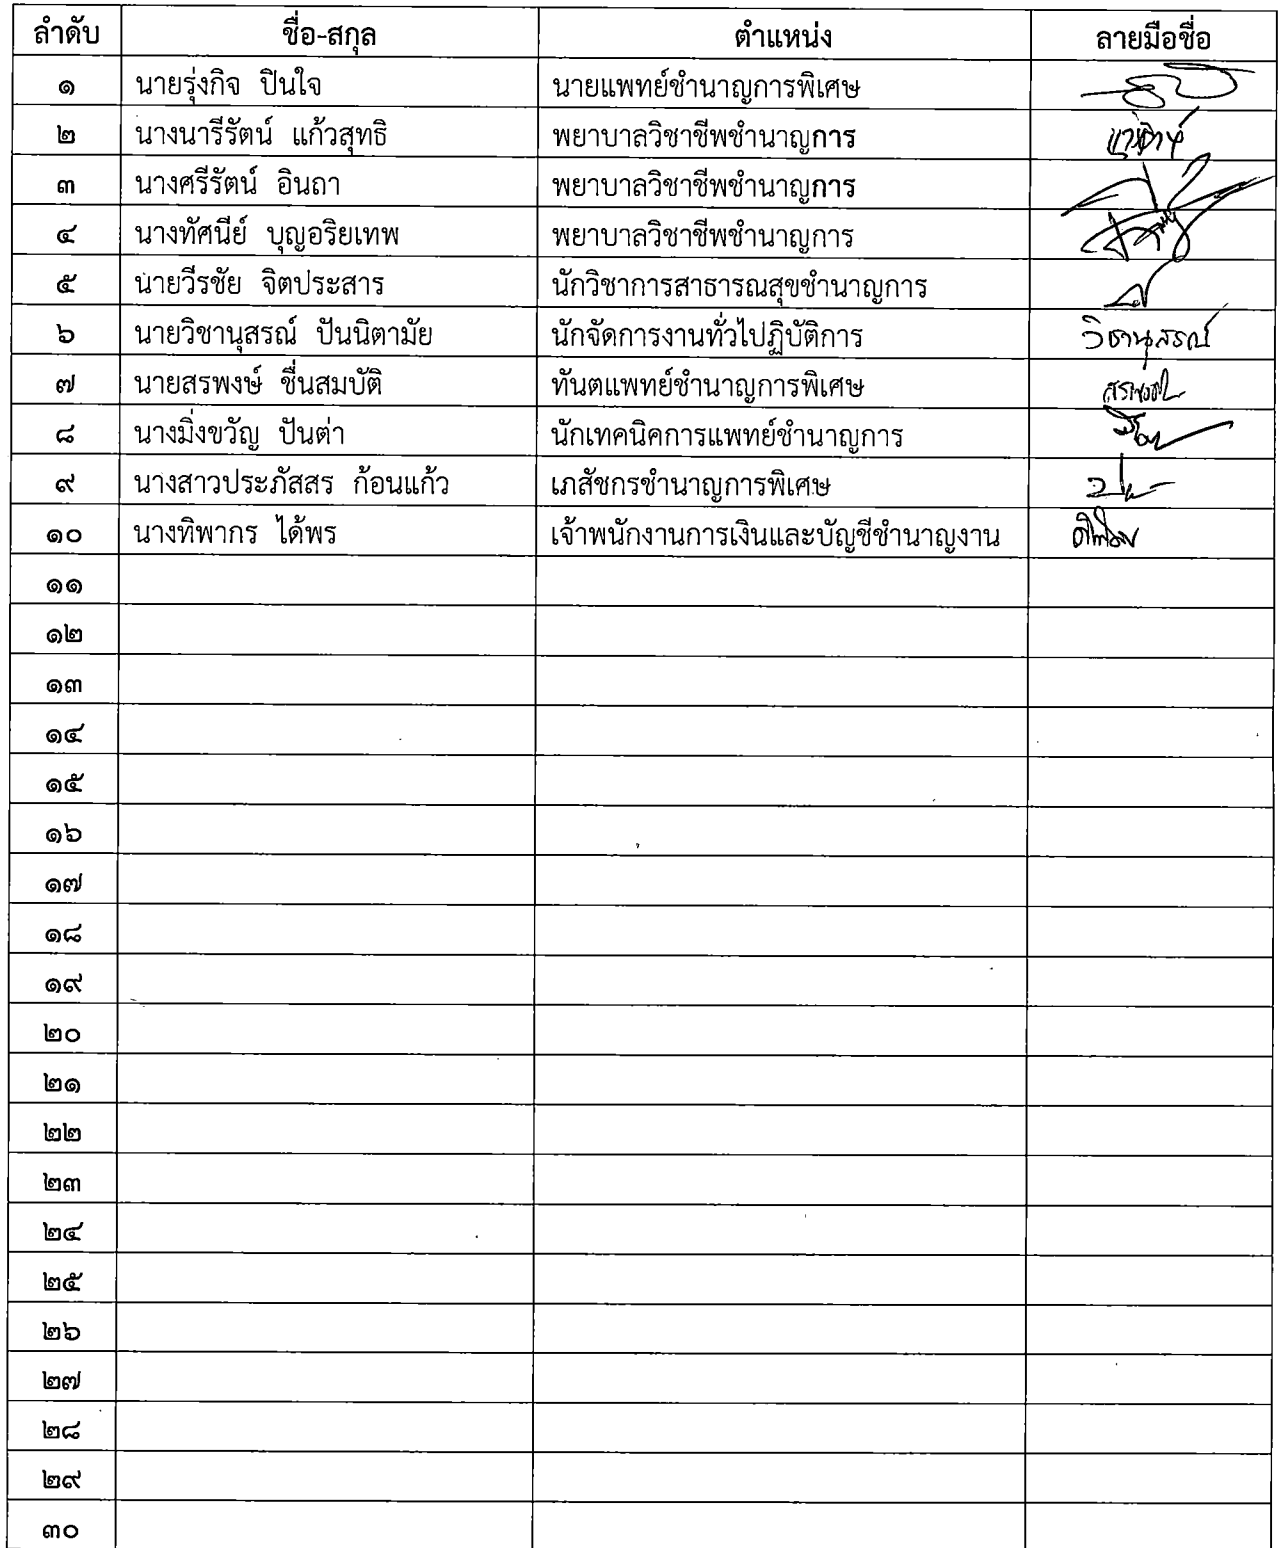 ลำดับ ชื่อ-สกุล ตำแหน่ง ลายมือชื่อ
๑ นายรุ่งกิจ ปินใจ นายแพทย์ชำนาญการพิเศษ
๒ นางนารีรัตน์ แก้วสุทธิ พยาบาลวิชาชีพชำนาญการ
๓ นางศรีรัตน์ อินถา พยาบาลวิชาชีพชำนาญการ
๔ นางทัศนีย์ บุญอริยเทพ พยาบาลวิชาชีพชำนาญการ
๕ นายวีรชัย จิตประสาร นักวิชาการสาธารณสุขชำนาญการ
๖ นายวิชานุสรณ์ ปันนิตามัย นักจัดการงานทั่วไปปฏิบัติการ วิชานุสรณ์
๗ นายสรพงษ์ ชื่นสมบัติ ทันตแพทย์ชำนาญการพิเศษ
๘ นางมิ่งขวัญ ปันต่า นักเทคนิคการแพทย์ชำนาญการ
๙ นางสาวประภัสสร ก้อนแก้ว เภสัชกรชำนาญการพิเศษ
๑๐ นางทิพากร ได้พร เจ้าพนักงานการเงินและบัญชีชำนาญงาน
๑๑
๑๒
๑๓
๑๔
๑๕
๑๖
๑๗
๑๘
๑๙
๒๐
๒๑
๒๒
๒๓
๒๔
๒๕
๒๖
๒๗
๒๘
๒๙
๓๐